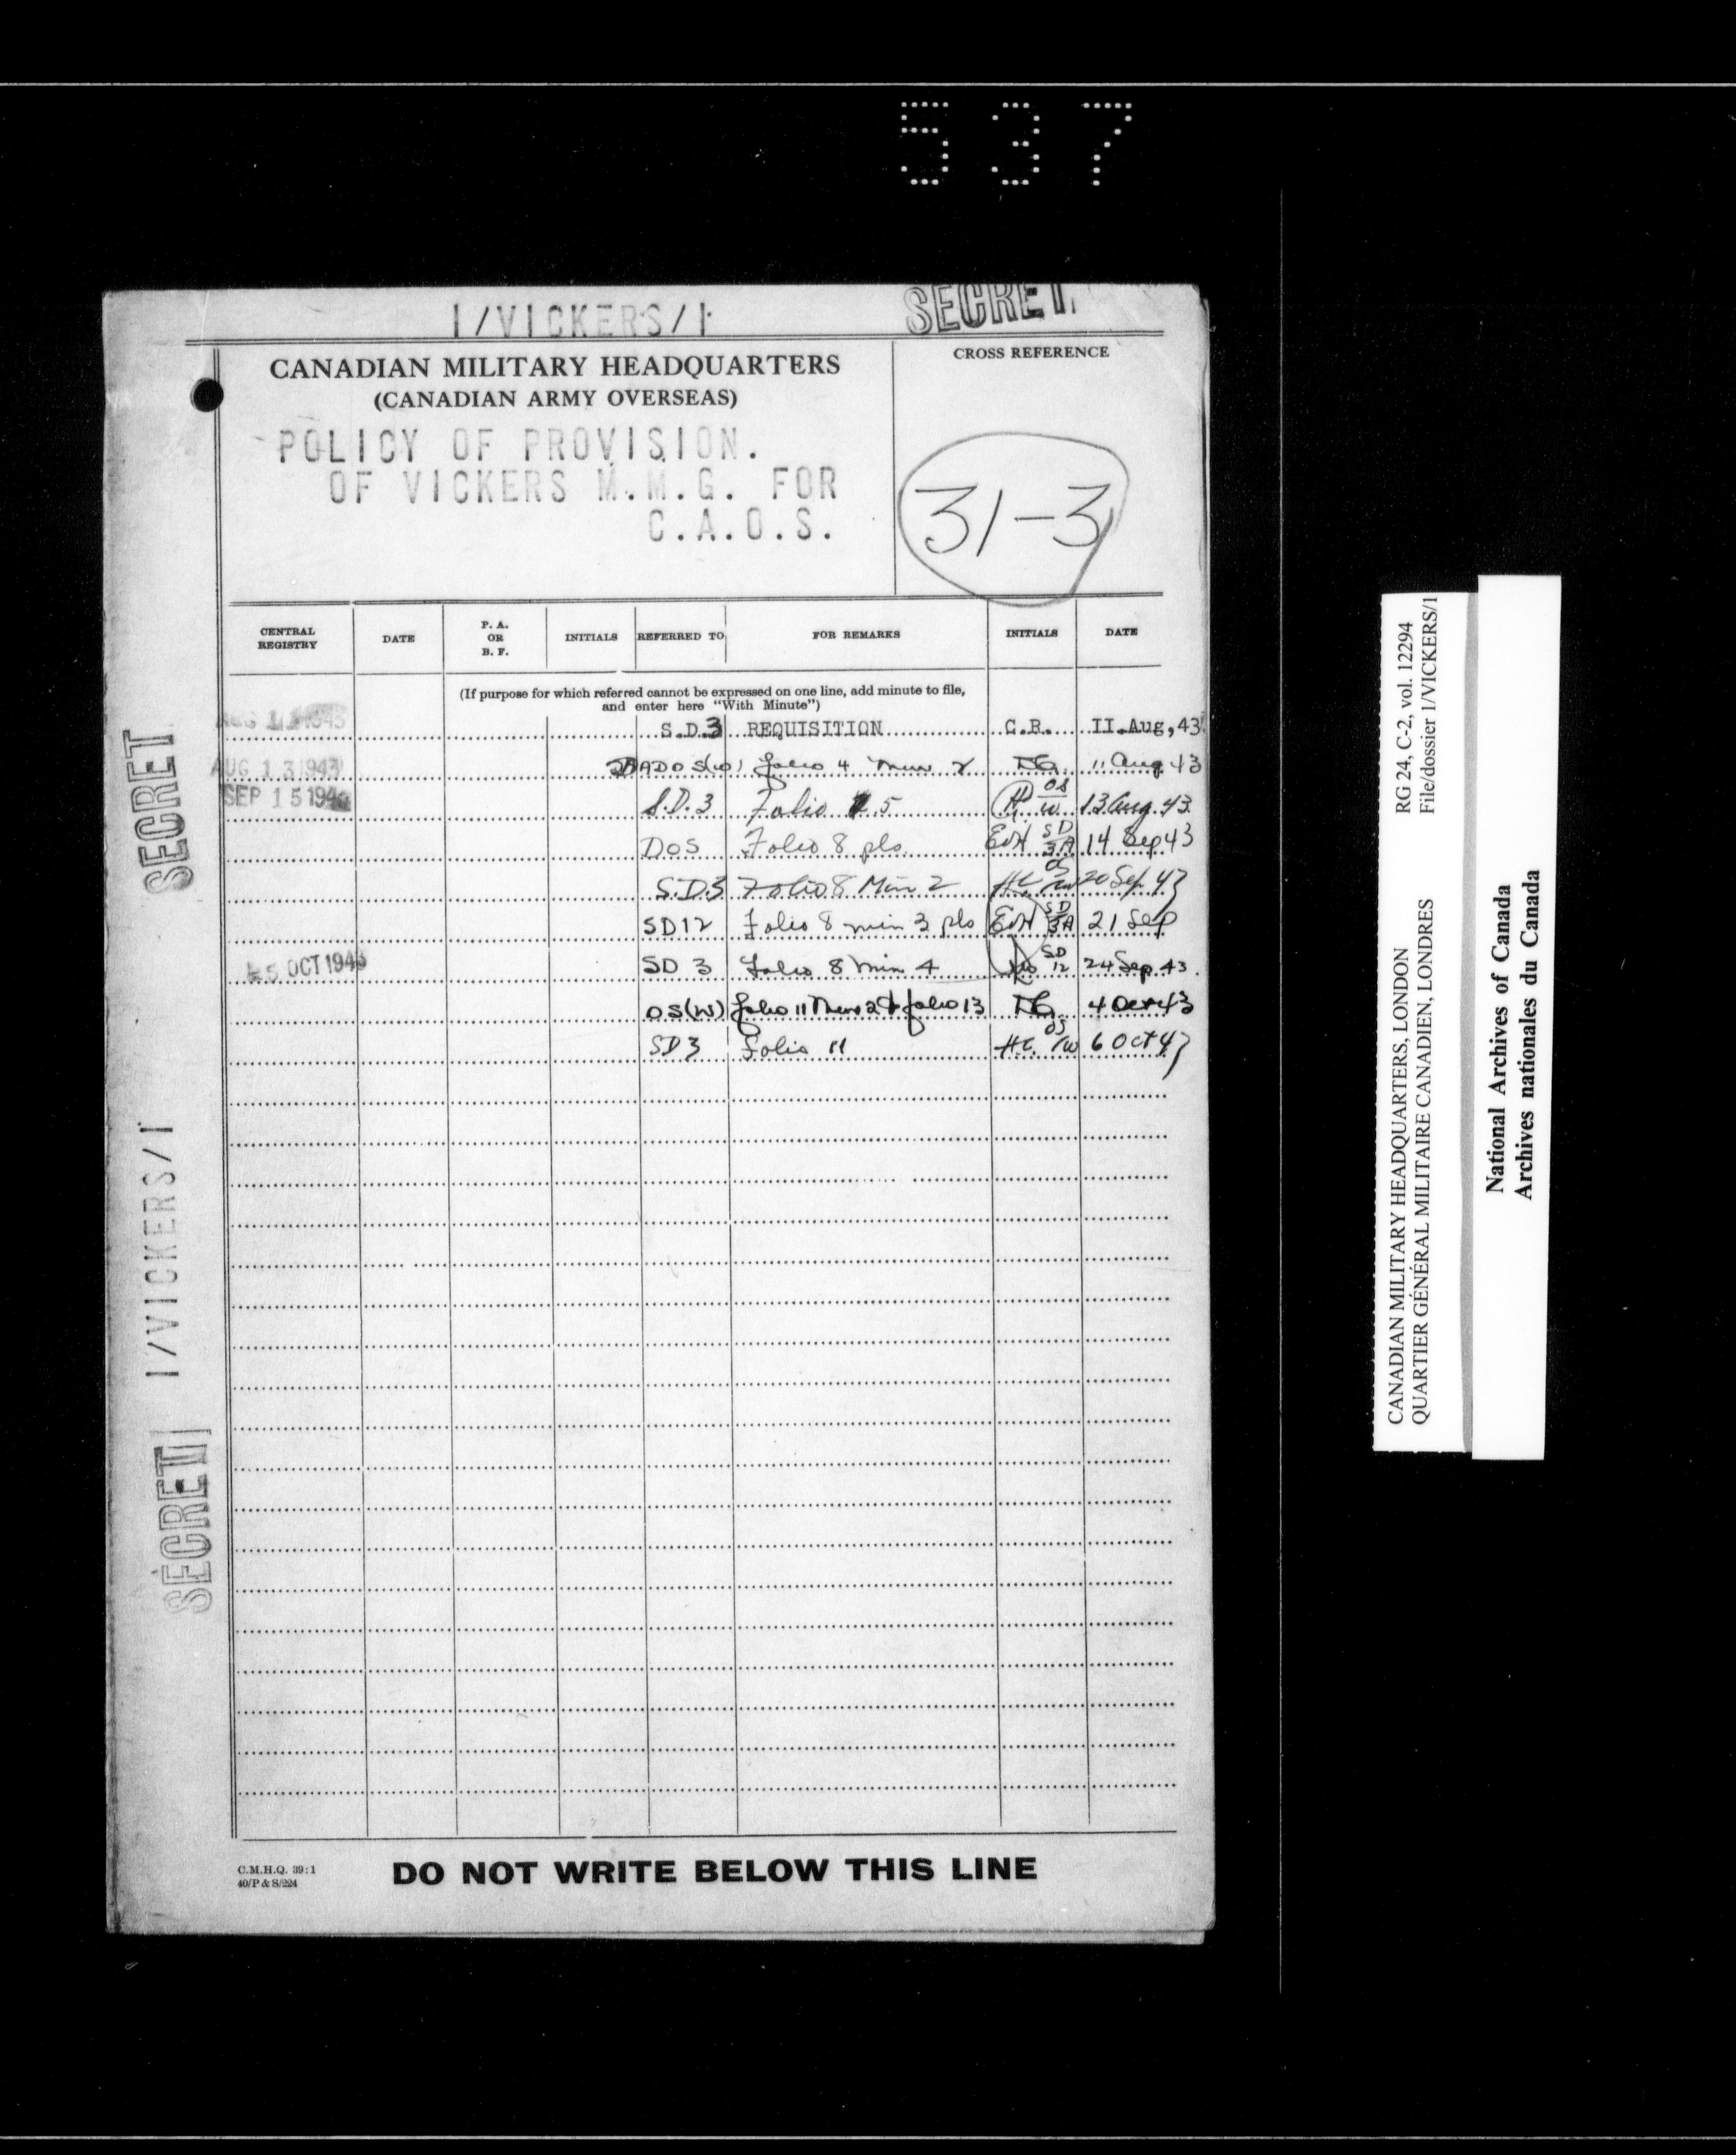 537
1/VICKERS/1
SECRET
CANADIAN MILITARY HEADQUARTERS
(CANADIAN ARMY OVERSEAS)
CROSS REFERENCE
POLICY OF PROVISION.
OF VICKERS M.M.G. FOR
C.A.O.S.
31-3
CENTRAL REGISTRY DATE P. A. OR B. F. INITIALS REFERRED TO FOR REMARKS INITIALS DATE
(If purpose for which referred cannot be expressed on one line, add minute to file,
and enter here "With Minute")
AUG 11 1943 S.D.3 REQUISITION C.R. II.Aug,43
AUG 13 1943 ADOS(W) folio 4 Min 2 11 Aug 43
SEP 15 1943 S.D.3 Folio 5 OS W 13 Aug. 43
DOS Folio 8 pls. SD 3A 14 Sep 43
S.D.3 Folio 8 Min 2 HC OS W 20 Sep 43
SD12 Folio 8 min 3 pls SD 3A 21 Sep
-5 OCT 1943 SD 3 Folio 8 Min 4 SD 12 24 Sep 43.
OS(W) folio 11 Min 2 & folio 13 4 Oct 43
SD3 Folio 11 HC. OS/W 6 Oct 43
SECRET
1/VICKERS/1
SECRET
C.M.H.Q. 39:1
40/P & S/224
DO NOT WRITE BELOW THIS LINE
CANADIAN MILITARY HEADQUARTERS, LONDON RG 24, C-2, vol. 12294
QUARTIER GÉNÉRAL MILITAIRE CANADIEN, LONDRES File/dossier 1/VICKERS/1
National Archives of Canada
Archives nationales du Canada